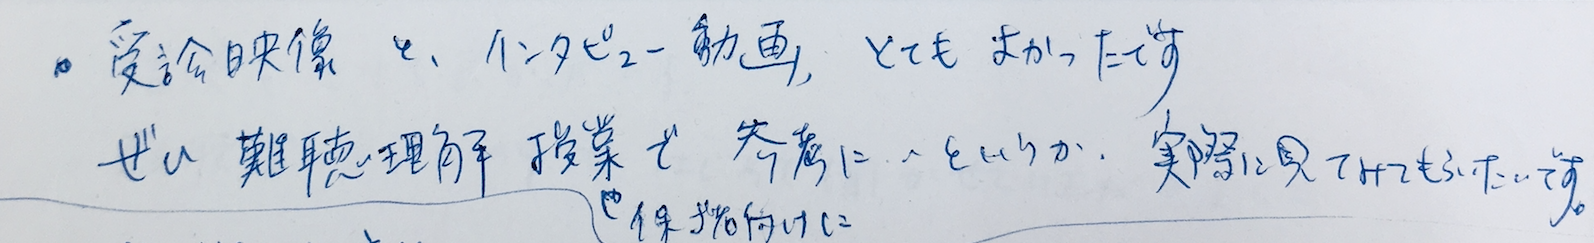 。受診映像 と、インタビュー動画, とても よかったです
ぜひ 難聴理解 授業で 参考に、、というか、実際に見てみてもらいたいです。
や保護者向けに